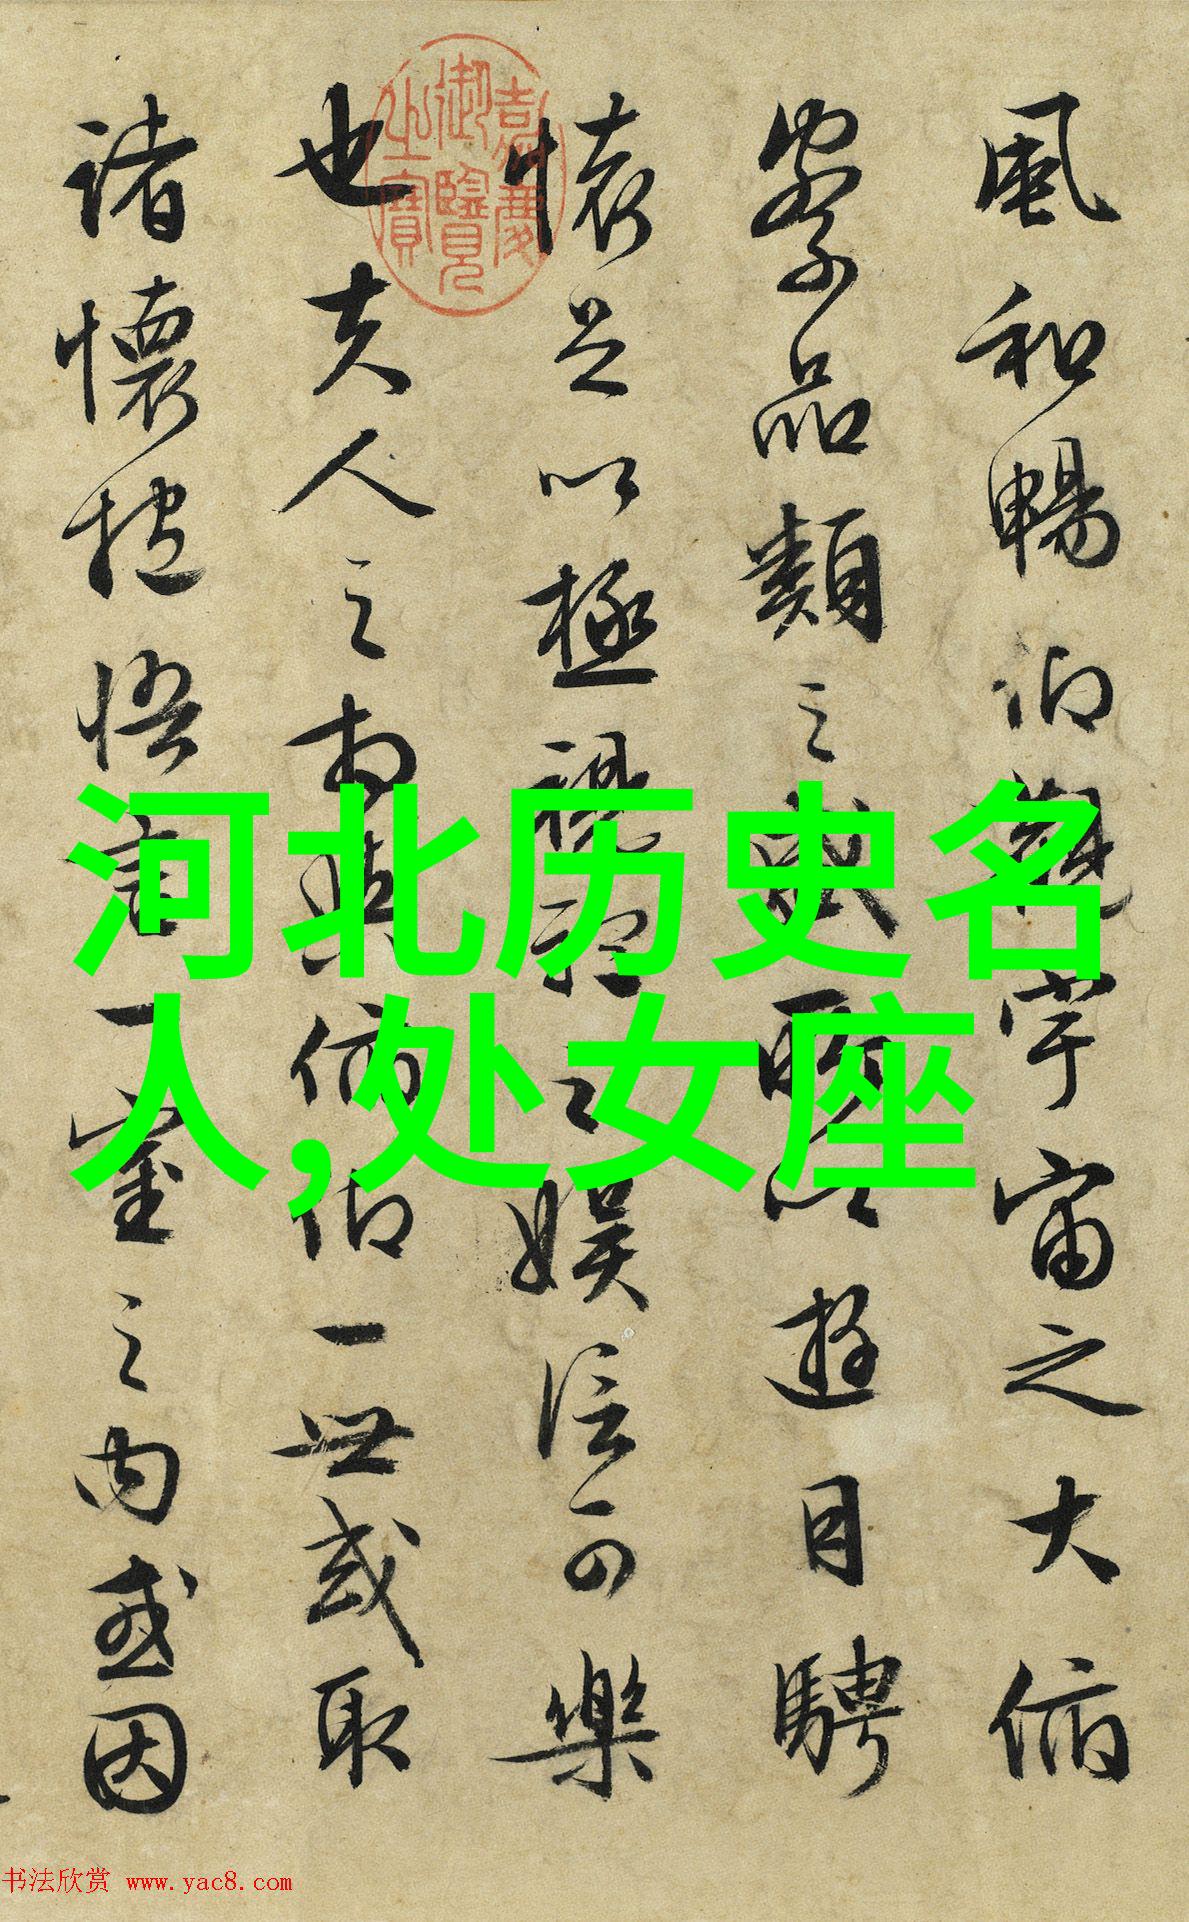 風和暢仰觀宇宙之大俯
察品類之盛所以遊目騁
懷足以極視聽之娛信可樂
也夫人之相與俯仰一世或取
諸懷抱悟言一室之内或因
嘉慶御覽之寶
河北历史名
人,处女座
书法欣赏 www.yac8.com